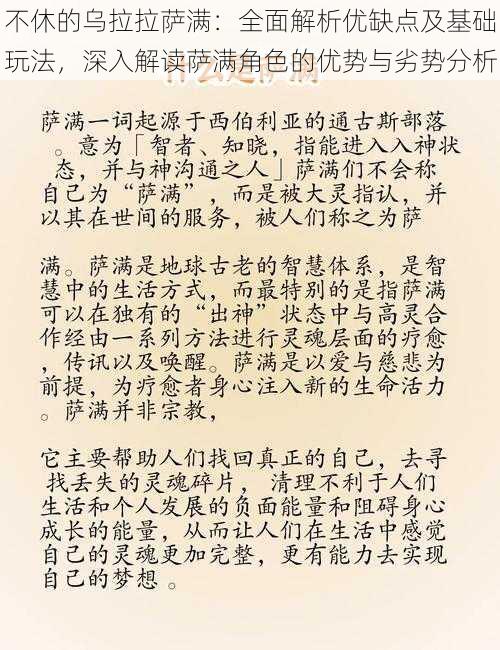 不休的乌拉拉萨满：全面解析优缺点及基础
玩法，深入解读萨满角色的优势与劣势分析
什么是萨满
萨满一词起源于西伯利亚的通古斯部落
。意为「智者、知晓，指能进入入神状
态，并与神沟通之人」萨满们不会称
自己为“萨满”，而是被大灵指认，并
以其在世间的服务，被人们称之为萨
满。萨满是地球古老的智慧体系，是智
慧中的生活方式，而最特别的是指萨满
可以在独有的“出神”状态中与高灵合
作经由一系列方法进行灵魂层面的疗愈
，传讯以及唤醒。萨满是以爱与慈悲为
前提，为疗愈者身心注入新的生命活力
。萨满并非宗教，
它主要帮助人们找回真正的自己，去寻
找丢失的灵魂碎片， 清理不利于人们
生活和个人发展的负面能量和阻碍身心
成长的能量，从而让人们在生活中感觉
自己的灵魂更加完整，更有能力去实现
自己的梦想 。